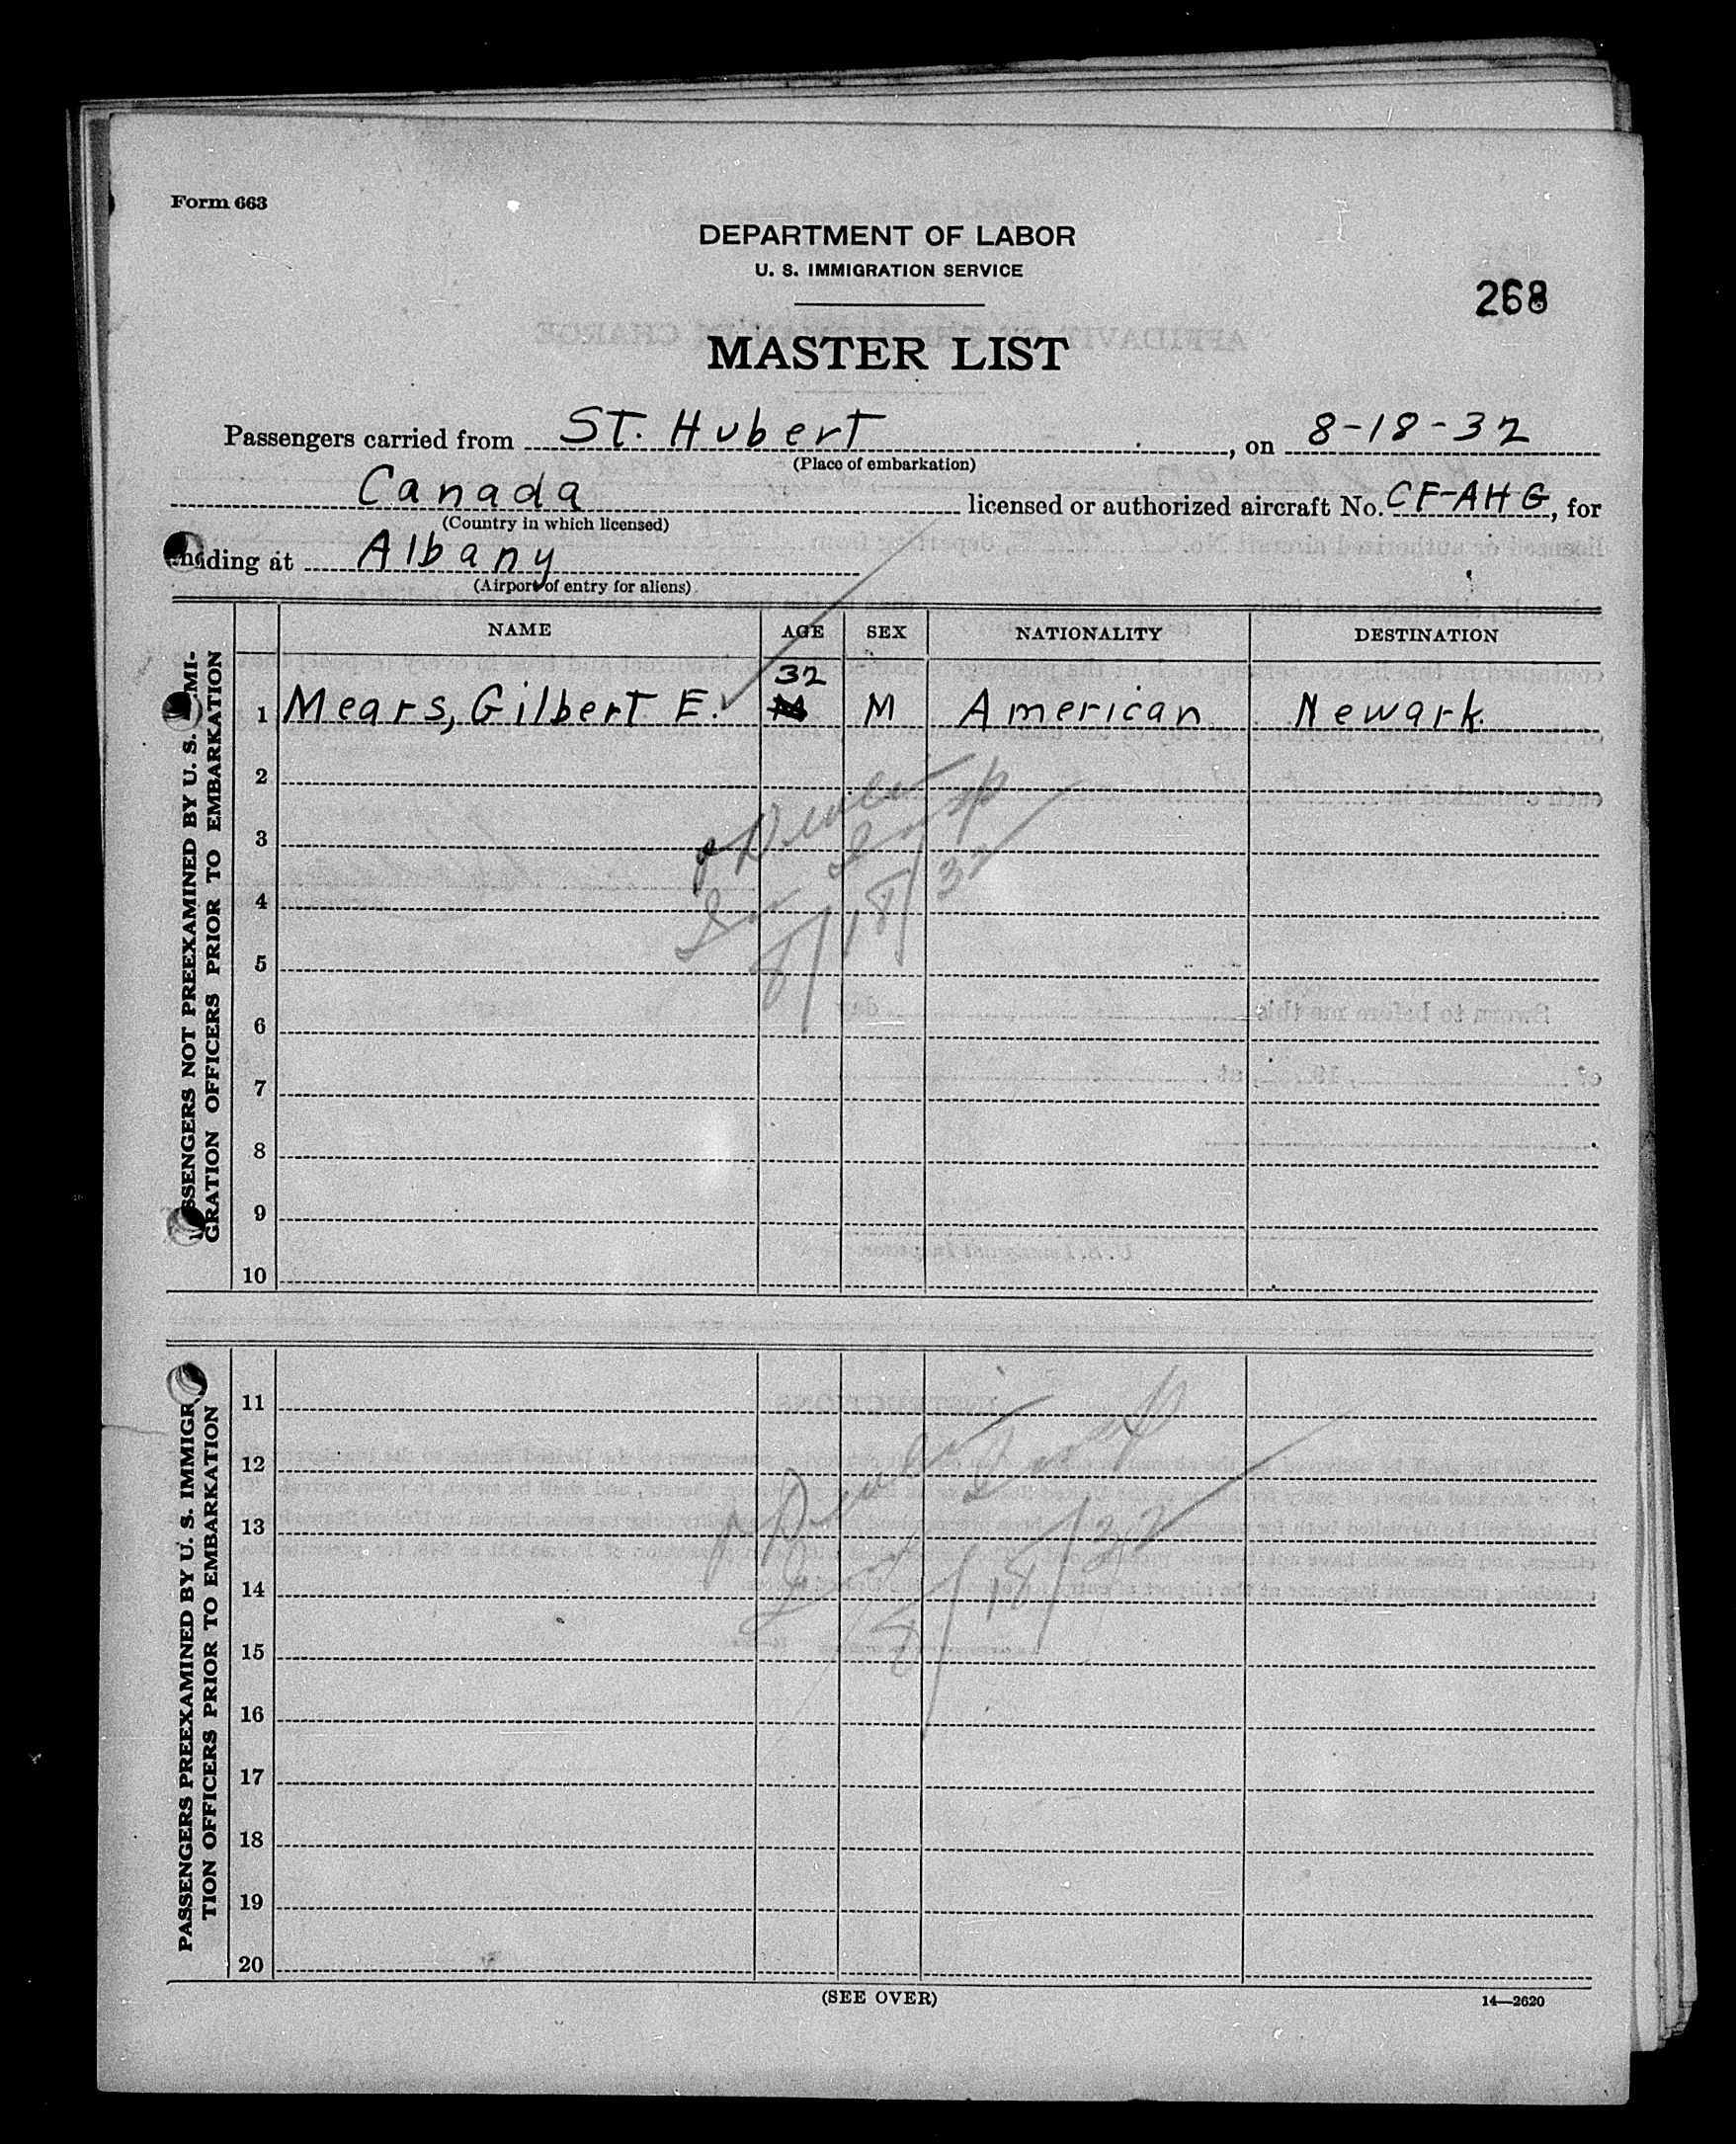 Form 663
DEPARTMENT OF LABOR
U. S. IMMIGRATION SERVICE
268
MASTER LIST
Passengers carried from ST. Hubert, on 8-18-32
(Place of embarkation)
Canada licensed or authorized aircraft No. CF-AHG, for
(Country in which licensed)
landing at Albany
(Airport of entry for aliens)
NAME AGE SEX NATIONALITY DESTINATION
PASSENGERS NOT PREEXAMINED BY U. S. IMMI-
GRATION OFFICERS PRIOR TO EMBARKATION
32
1 Mears, Gilbert E. M American Newark.
2
3
4
8/18/32
5
6
7
8
9
10
PASSENGERS PREEXAMINED BY U. S. IMMIGRA-
TION OFFICERS PRIOR TO EMBARKATION
11
12
13
8/18/32
14
15
16
17
18
19
20
(SEE OVER)
14—2620